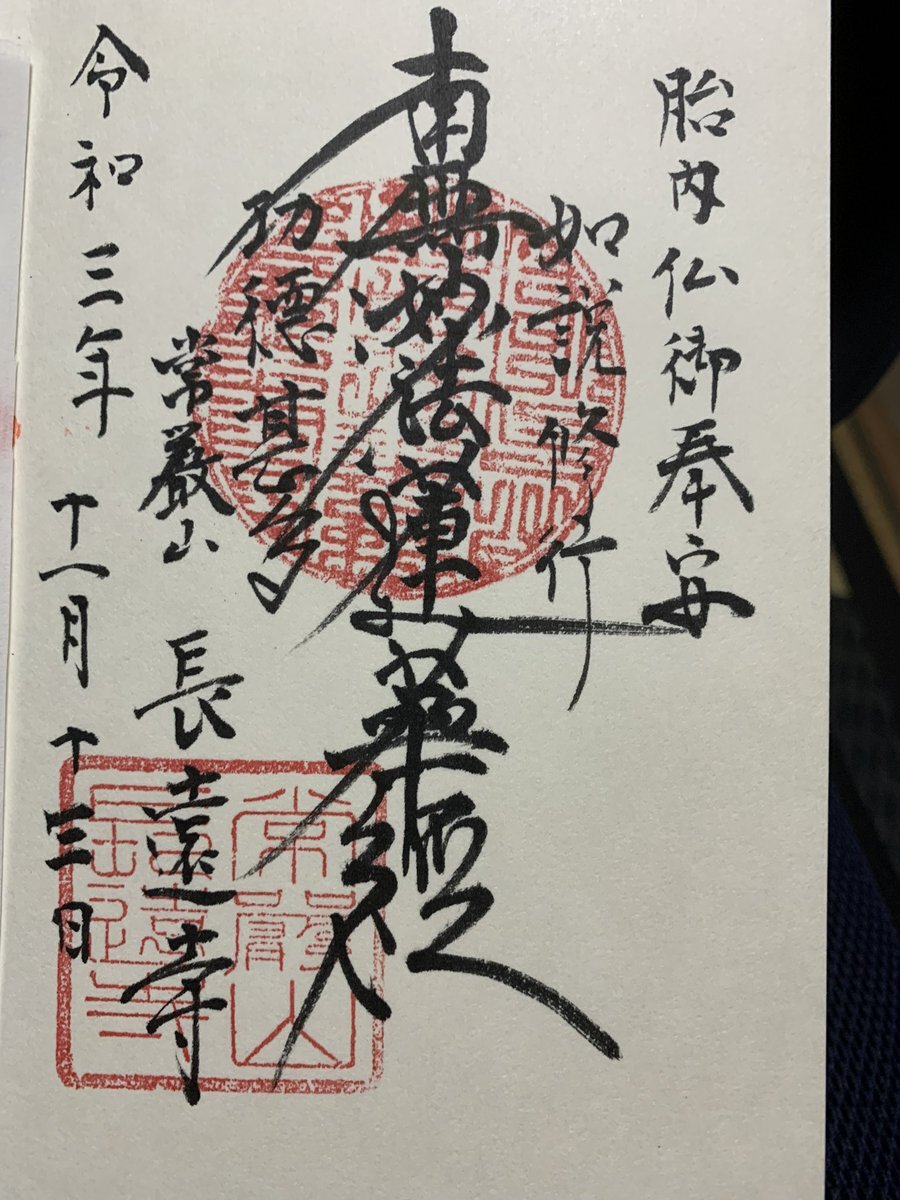 胎内仏御奉安
如説修行
南無妙法蓮華経
功徳甚多
常巌山 長遠寺
令和三年 十一月 十三日
常巌山
長遠寺